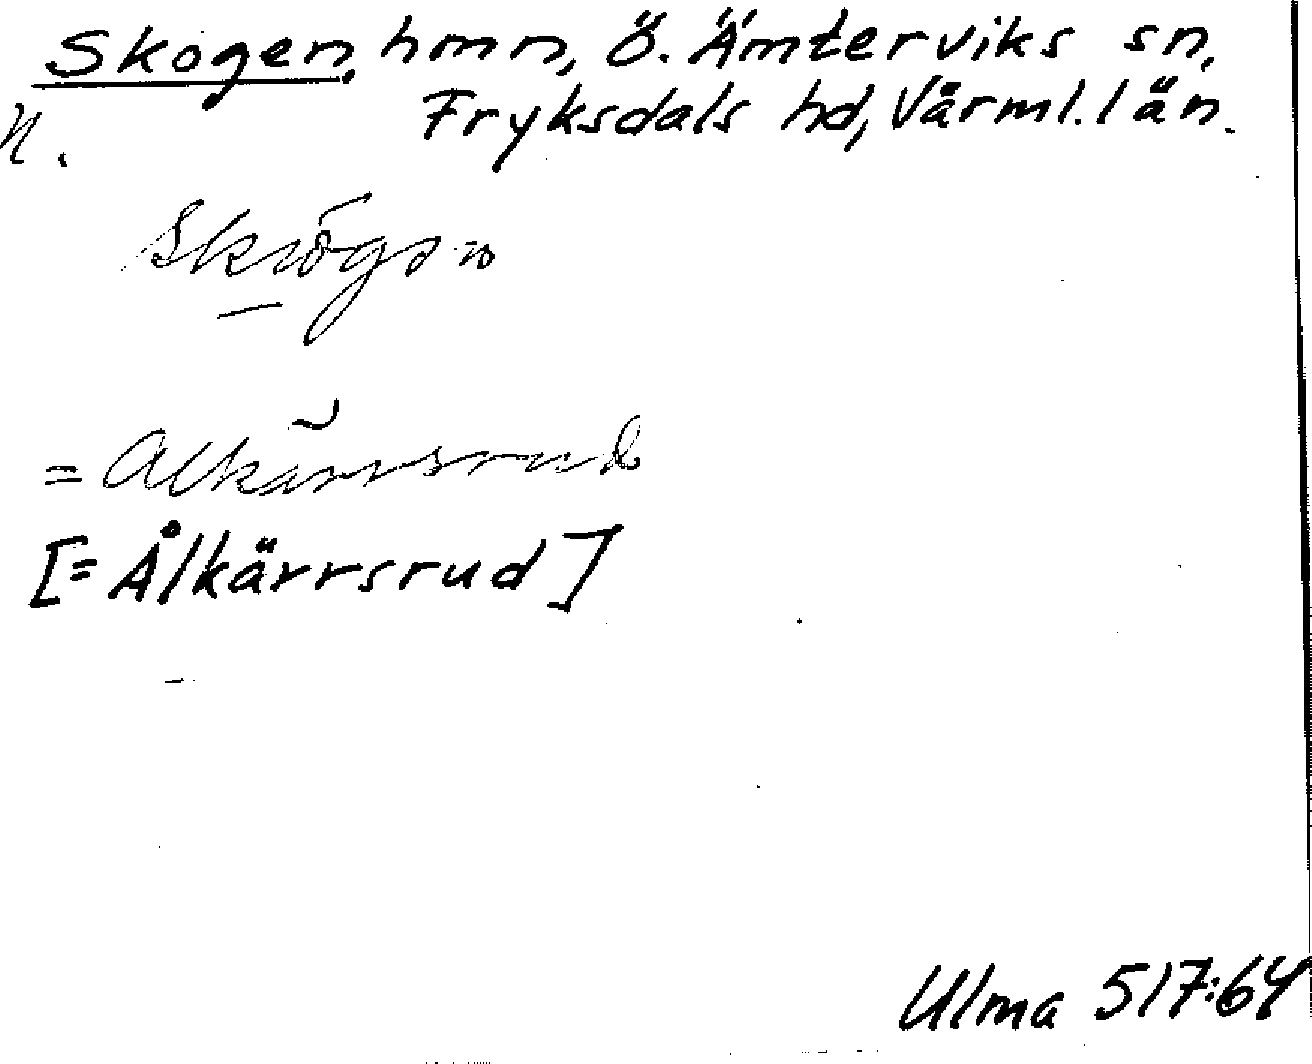 Skogen, hmn, Ö. Ämterviks sn,
N. Fryksdals hd, Värml. län.
= Alkärrsrud
[= Ålkärrsrud]
Ulma 517:64